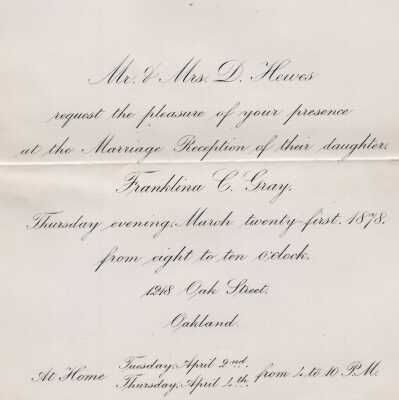 Mr. & Mrs. D. Hewes
request the pleasure of your presence
at the Marriage Reception of their daughter,
Franklina C. Gray,
Thursday evening, March twenty-first, 1878,
from eight to ten o'clock.
1218 Oak Street.
Oakland.
At Home Tuesday, April 2nd, Thursday, April 4th, from 4 to 10 P.M.